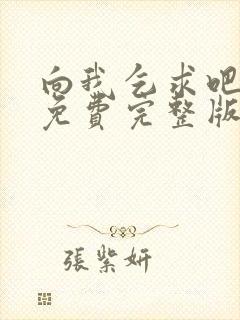 向我乞求吧
免費完整版
張紫妍